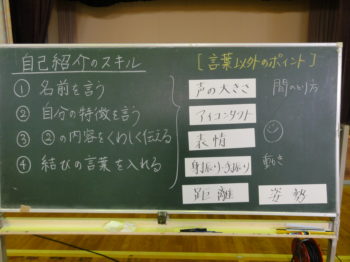 自己紹介のスキル
① 名前を言う
② 自分の特徴を言う
③ ②の内容をくわしく伝える
④ 結びの言葉を入れる
[言葉以外のポイント]
声の大きさ
間のとり方
アイコンタクト
表情
身振り・手振り
動き
距離
姿勢